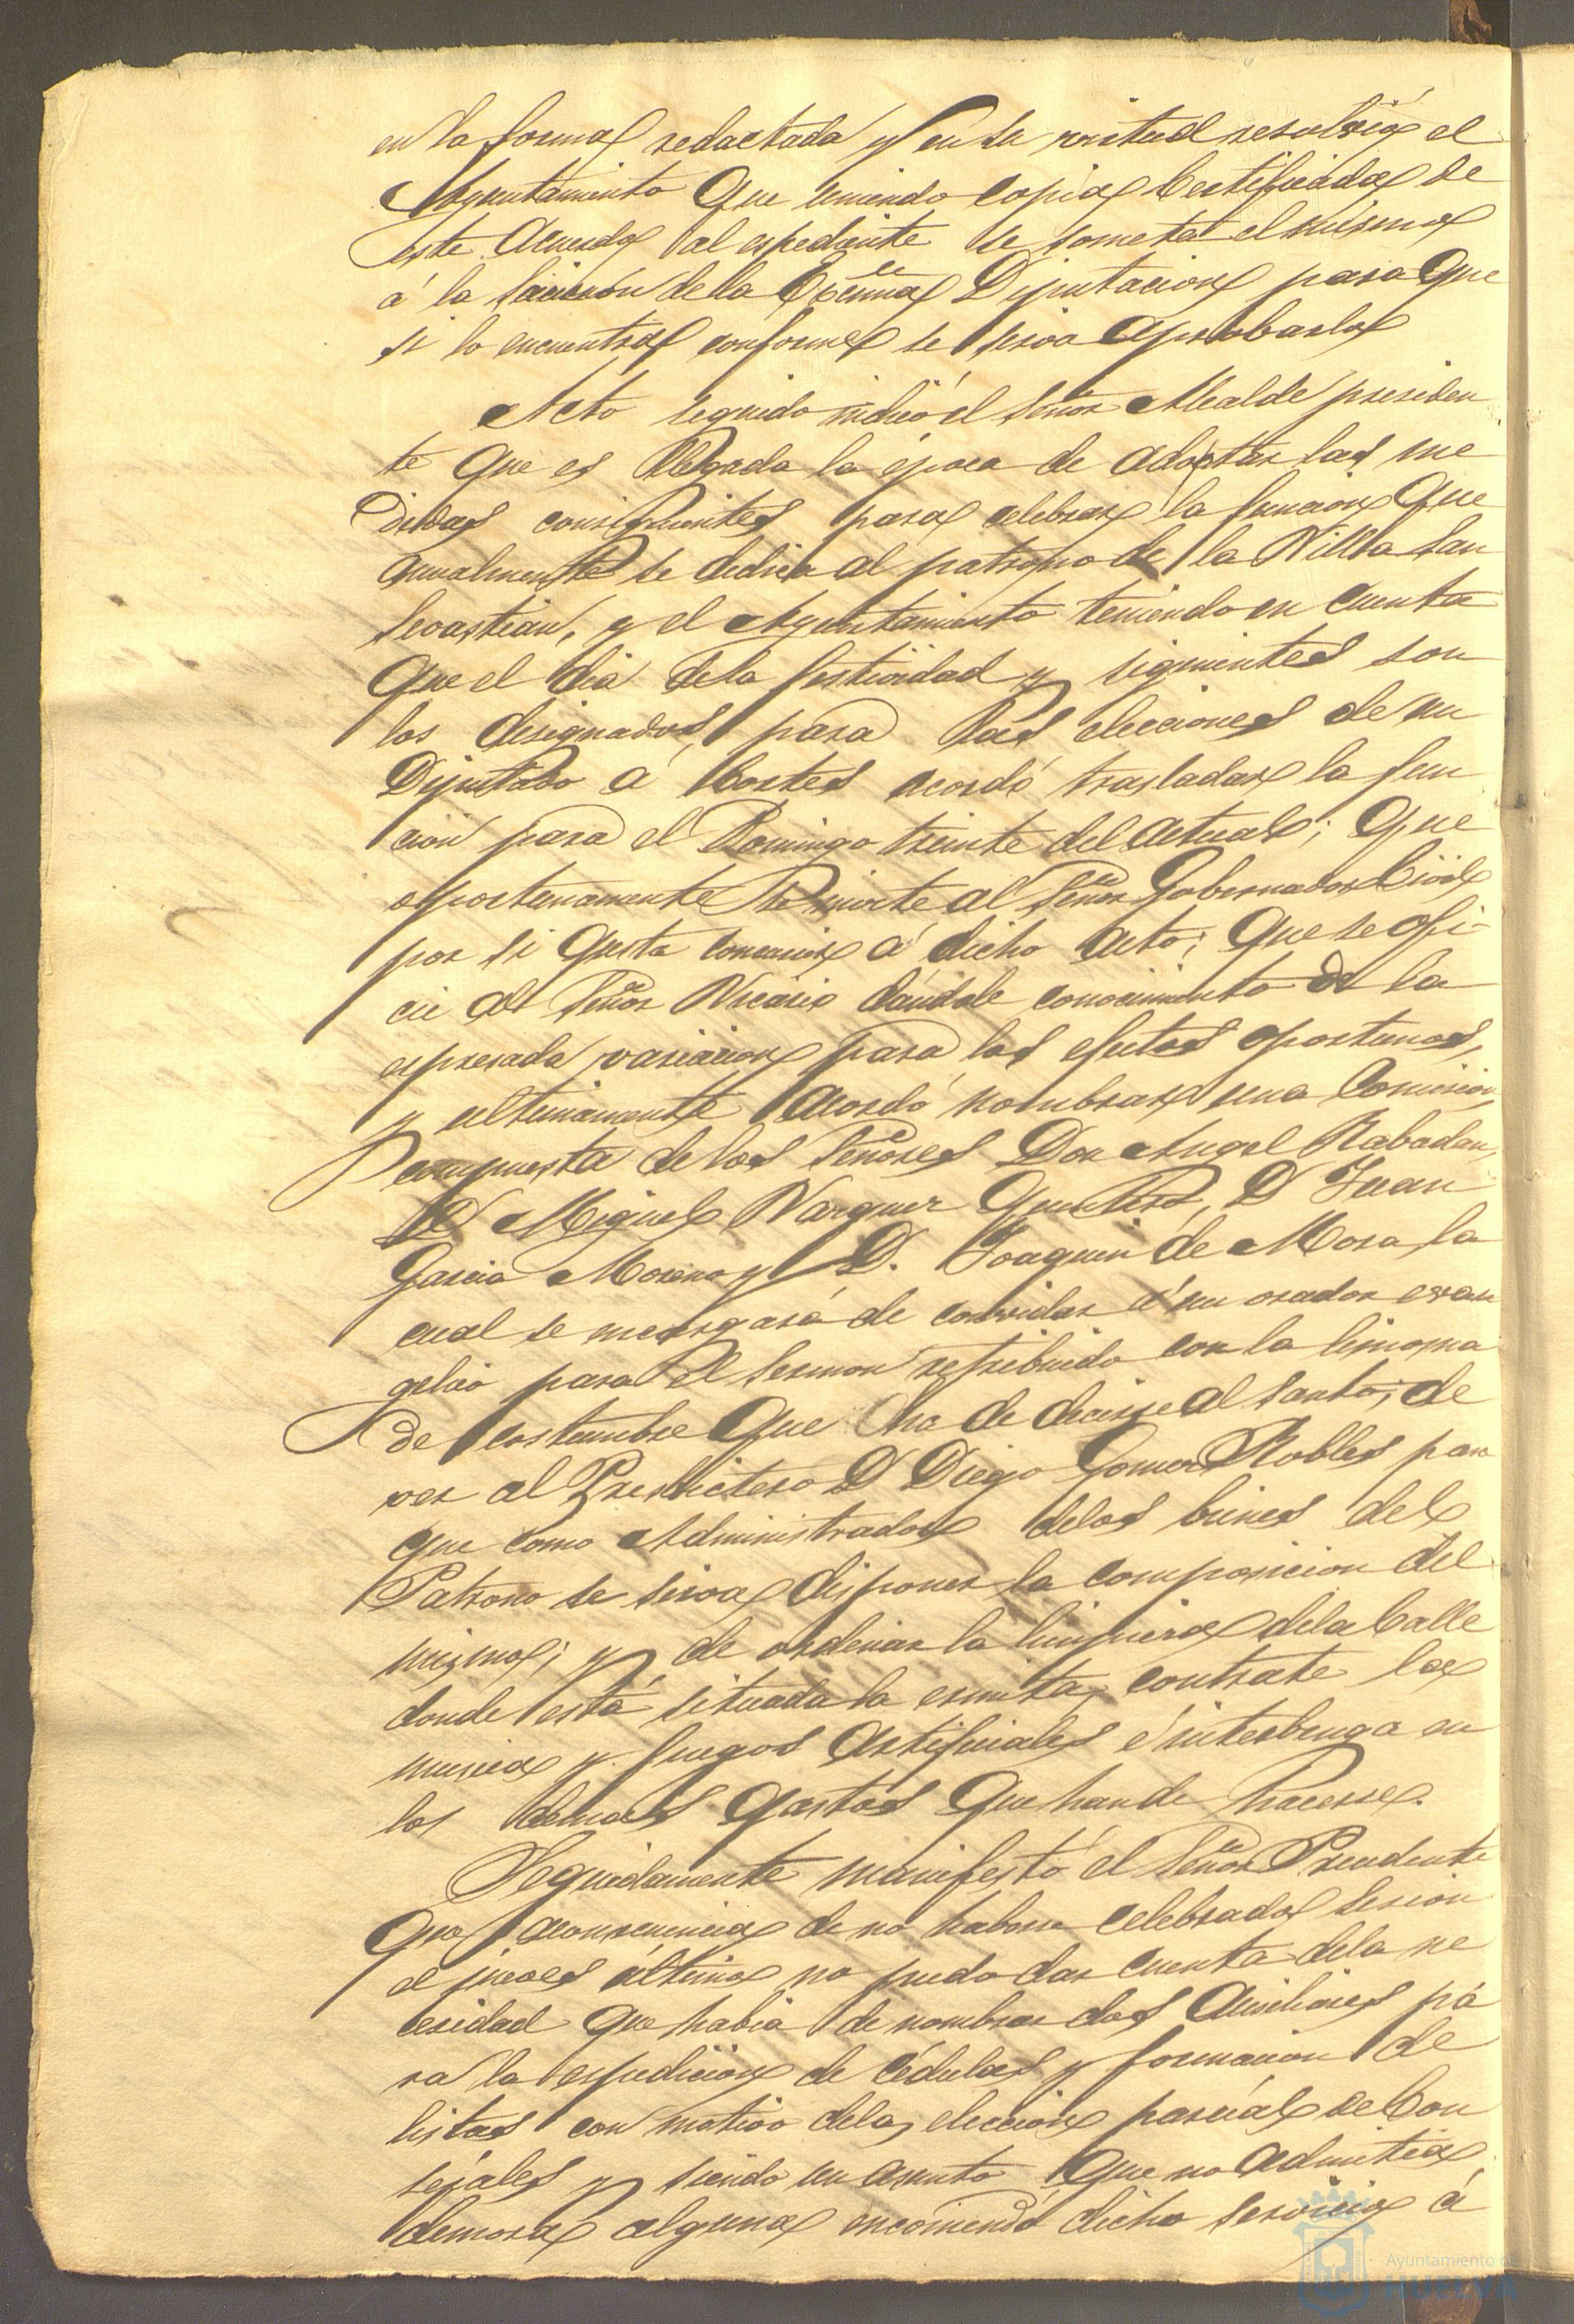 en la forma redactada y en su virtud resolvió el
Ayuntamiento que uniendo copia certificada de
este acuerdo al espediente se someta el mismo
á la sancion de la Excma Diputacion para que
si lo encuentra conforme se sirva aprobarlo
Acto seguido indicó el Señor Alcalde presiden
te que es llegada la época de adoptar las me
didas consiguientes para celebrar la funcion que
anualmente se dedica al patrono de la Villa San
Sevastian, y el Ayuntamiento teniendo en cuenta
que el dia de la festividad y siguientes son
los designados para las elecciones de un
Diputado á Cortes acordó trasladar la fun
cion para el Domingo treinta del actual; que
oportunamente se invite al Señor Gobernador Civil
por si gusta concurrir á dicho acto; que se ofi-
cie al Señor Vicario dándole conocimiento de la
espresada variacion para los efectos oportunos,
y ultimamente acordó nombrar una Comision
compuesta de los Señores Don Angel Rabadan,
D Miguel Vazquez Quintero, D Juan
Garcia Moreno y D. Joaquin de Mora, la
cual se encargará de convidar á un orador evan
gelico para el sermon retribuido con la limosna
de costumbre que ha de decirse al santo; de
ver al Presbitero D Diego Gomez Robles para
que como Administrador de los bienes del
Patrono se sirva disponer la composicion del
mismo; y de ordenar la limpieza de la Calle
donde está situada la ermita, contrate la
musica y fuegos artificiales é interbenga en
los demas gastos que han de hacerse.
Seguidamente manifestó el Señor Presidente
que á consecuencia de no haberse celebrado sesion
el jueves último no pudo dar cuenta de la ne
cesidad que habia de nombrar dos Auxiliares pá
ra la espedicion de cédulas y formacion de
listas con motivo de la eleccion parcial de Con
sejales y siendo un asunto que no admitia
demora alguna encomendó dicho servicio á
Ayuntamiento de
HUELVA